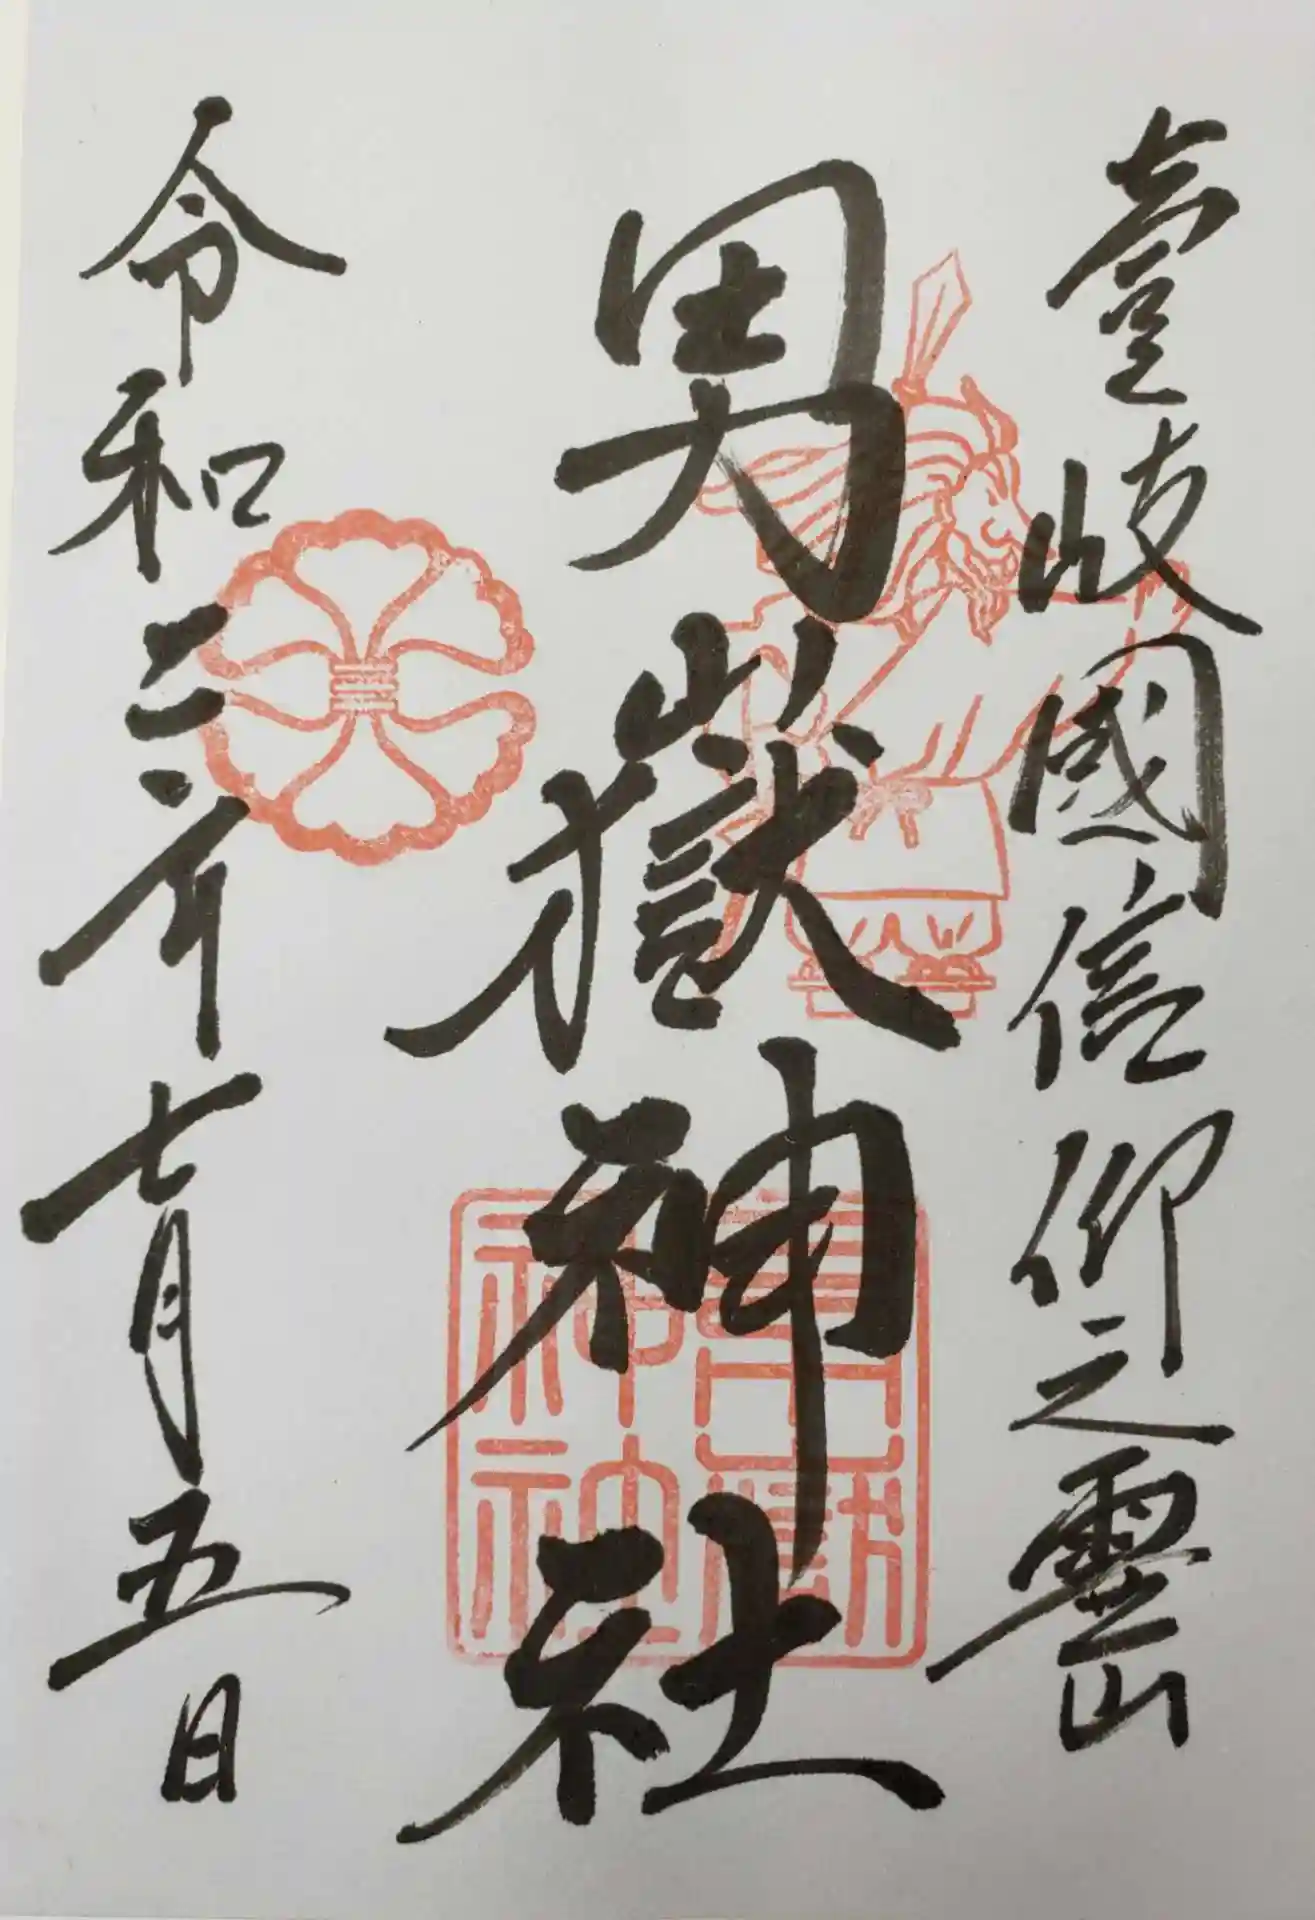 壹岐國信仰之霊山
男嶽神社
令和二年七月五日
男嶽
神社